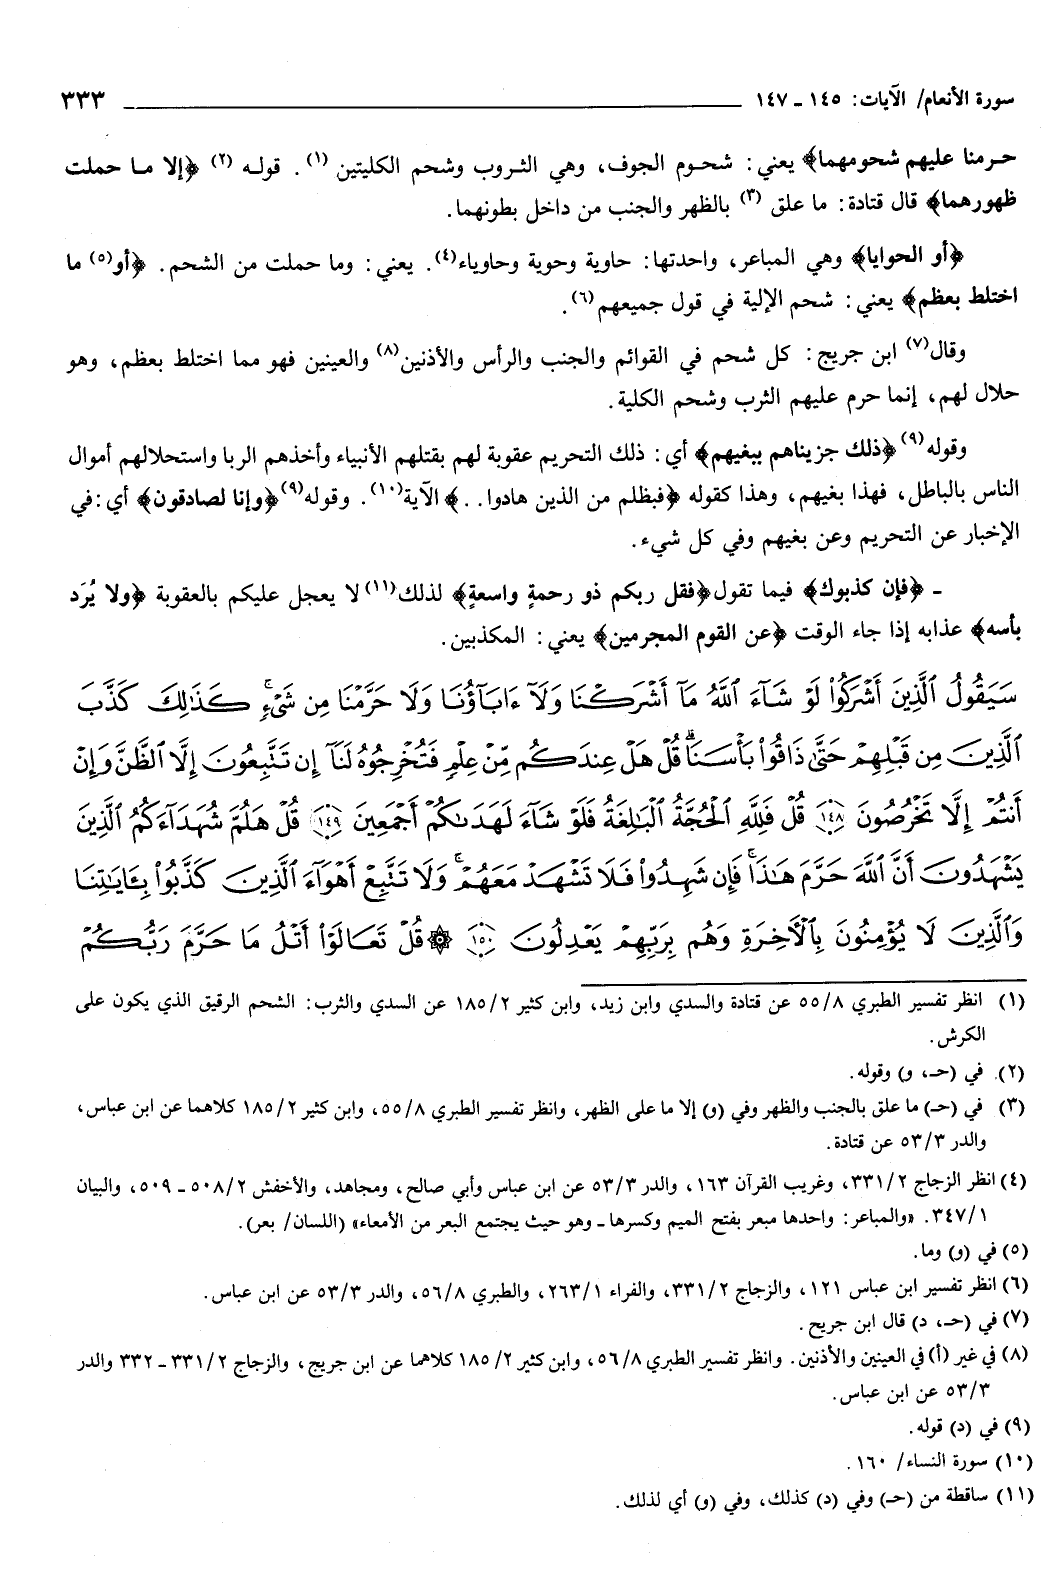 سورة الأنعام/ الآيات: ١٤٥ ـ ١٤٧ ٣٣٣
حرمنا عليهم شحومهما﴾ يعني: شحوم الجوف، وهي الثروب وشحم الكليتين (١). قوله (٢) ﴿إلا ما حملت
ظهورهما﴾ قال قتادة: ما علق (٣) بالظهر والجنب من داخل بطونهما.
﴿أو الحوايا﴾ وهي المباعر، واحدتها: حاوية وحوية وحاوياء(٤). يعني: وما حملت من الشحم. ﴿أو(٥) ما
اختلط بعظم﴾ يعني: شحم الإلية في قول جميعهم(٦).
وقال(٧) ابن جريج: كل شحم في القوائم والجنب والرأس والأذنين(٨) والعينين فهو مما اختلط بعظم، وهو
حلال لهم، إنما حرم عليهم الثرب وشحم الكلية.
وقوله(٩) ﴿ذلك جزيناهم ببغيهم﴾ أي: ذلك التحريم عقوبة لهم بقتلهم الأنبياء وأخذهم الربا واستحلالهم أموال
الناس بالباطل، فهذا بغيهم، وهذا كقوله ﴿فبظلم من الذين هادوا. .﴾ الآية(١٠). وقوله(٩) ﴿وإنا لصادقون﴾ أي: في
الإخبار عن التحريم وعن بغيهم وفي كل شيء.
ـ ﴿فإن كذبوك﴾ فيما تقول ﴿فقل ربكم ذو رحمةٍ واسعةٍ﴾ لذلك(١١) لا يعجل عليكم بالعقوبة ﴿ولا يُرَد
بأسه﴾ عذابه إذا جاء الوقت ﴿عن القوم المجرمين﴾ يعني: المكذبين.
سَيَقُولُ ٱلَّذِينَ أَشْرَكُوا۟ لَوْ شَآءَ ٱللَّهُ مَآ أَشْرَكْنَا وَلَآ ءَابَآؤُنَا وَلَا حَرَّمْنَا مِن شَىْءٍ ۚ كَذَٰلِكَ كَذَّبَ
ٱلَّذِينَ مِن قَبْلِهِمْ حَتَّىٰ ذَاقُوا۟ بَأْسَنَا ۗ قُلْ هَلْ عِندَكُم مِّنْ عِلْمٍ فَتُخْرِجُوهُ لَنَآ إِن تَتَّبِعُونَ إِلَّا ٱلظَّنَّ وَإِنْ
أَنتُمْ إِلَّا تَخْرُصُونَ ١٤٨ قُلْ فَلِلَّهِ ٱلْحُجَّةُ ٱلْبَـٰلِغَةُ فَلَوْ شَآءَ لَهَدَىٰكُمْ أَجْمَعِينَ ١٤٩ قُلْ هَلُمَّ شُهَدَآءَكُمُ ٱلَّذِينَ
يَشْهَدُونَ أَنَّ ٱللَّهَ حَرَّمَ هَـٰذَا ۖ فَإِن شَهِدُوا۟ فَلَا تَشْهَدْ مَعَهُمْ ۚ وَلَا تَتَّبِعْ أَهْوَآءَ ٱلَّذِينَ كَذَّبُوا۟ بِـَٔايَـٰتِنَا
وَٱلَّذِينَ لَا يُؤْمِنُونَ بِٱلْـَٔاخِرَةِ وَهُم بِرَبِّهِمْ يَعْدِلُونَ ١٥٠ ۞ قُلْ تَعَالَوْا۟ أَتْلُ مَا حَرَّمَ رَبُّكُمْ
(١) انظر تفسير الطبري ٥٥/٨ عن قتادة والسدي وابن زيد، وابن كثير ١٨٥/٢ عن السدي والثرب: الشحم الرقيق الذي يكون على
الكرش.
(٢) في (حـ، و) وقوله.
(٣) في (حـ) ما علق بالجنب والظهر وفي (و) إلا ما على الظهر، وانظر تفسير الطبري ٥٥/٨، وابن كثير ١٨٥/٢ كلاهما عن ابن عباس،
والدر ٥٣/٣ عن قتادة.
(٤) انظر الزجاج ٣٣١/٢، وغريب القرآن ١٦٣، والدر ٥٣/٣ عن ابن عباس وأبي صالح، ومجاهد، والأخفش ٥٠٨/٢ ـ ٥٠٩، والبيان
٣٤٧/١. «والمباعر: واحدها مبعر بفتح الميم وكسرها ـ وهو حيث يجتمع البعر من الأمعاء» (اللسان/ بعر).
(٥) في (و) وما.
(٦) انظر تفسير ابن عباس ١٢١، والزجاج ٣٣١/٢، والفراء ٢٦٣/١، والطبري ٥٦/٨، والدر ٥٣/٣ عن ابن عباس.
(٧) في (حـ، د) قال ابن جريح.
(٨) في غير (أ) في العينين والأذنين. وانظر تفسير الطبري ٥٦/٨، وابن كثير ١٨٥/٢ كلاهما عن ابن جريج، والزجاج ٣٣١/٢ ـ ٣٣٢ والدر
٥٣/٣ عن ابن عباس.
(٩) في (د) قوله.
(١٠) سورة النساء/ ١٦٠.
(١١) ساقطة من (حـ) وفي (د) كذلك، وفي (و) أي لذلك.